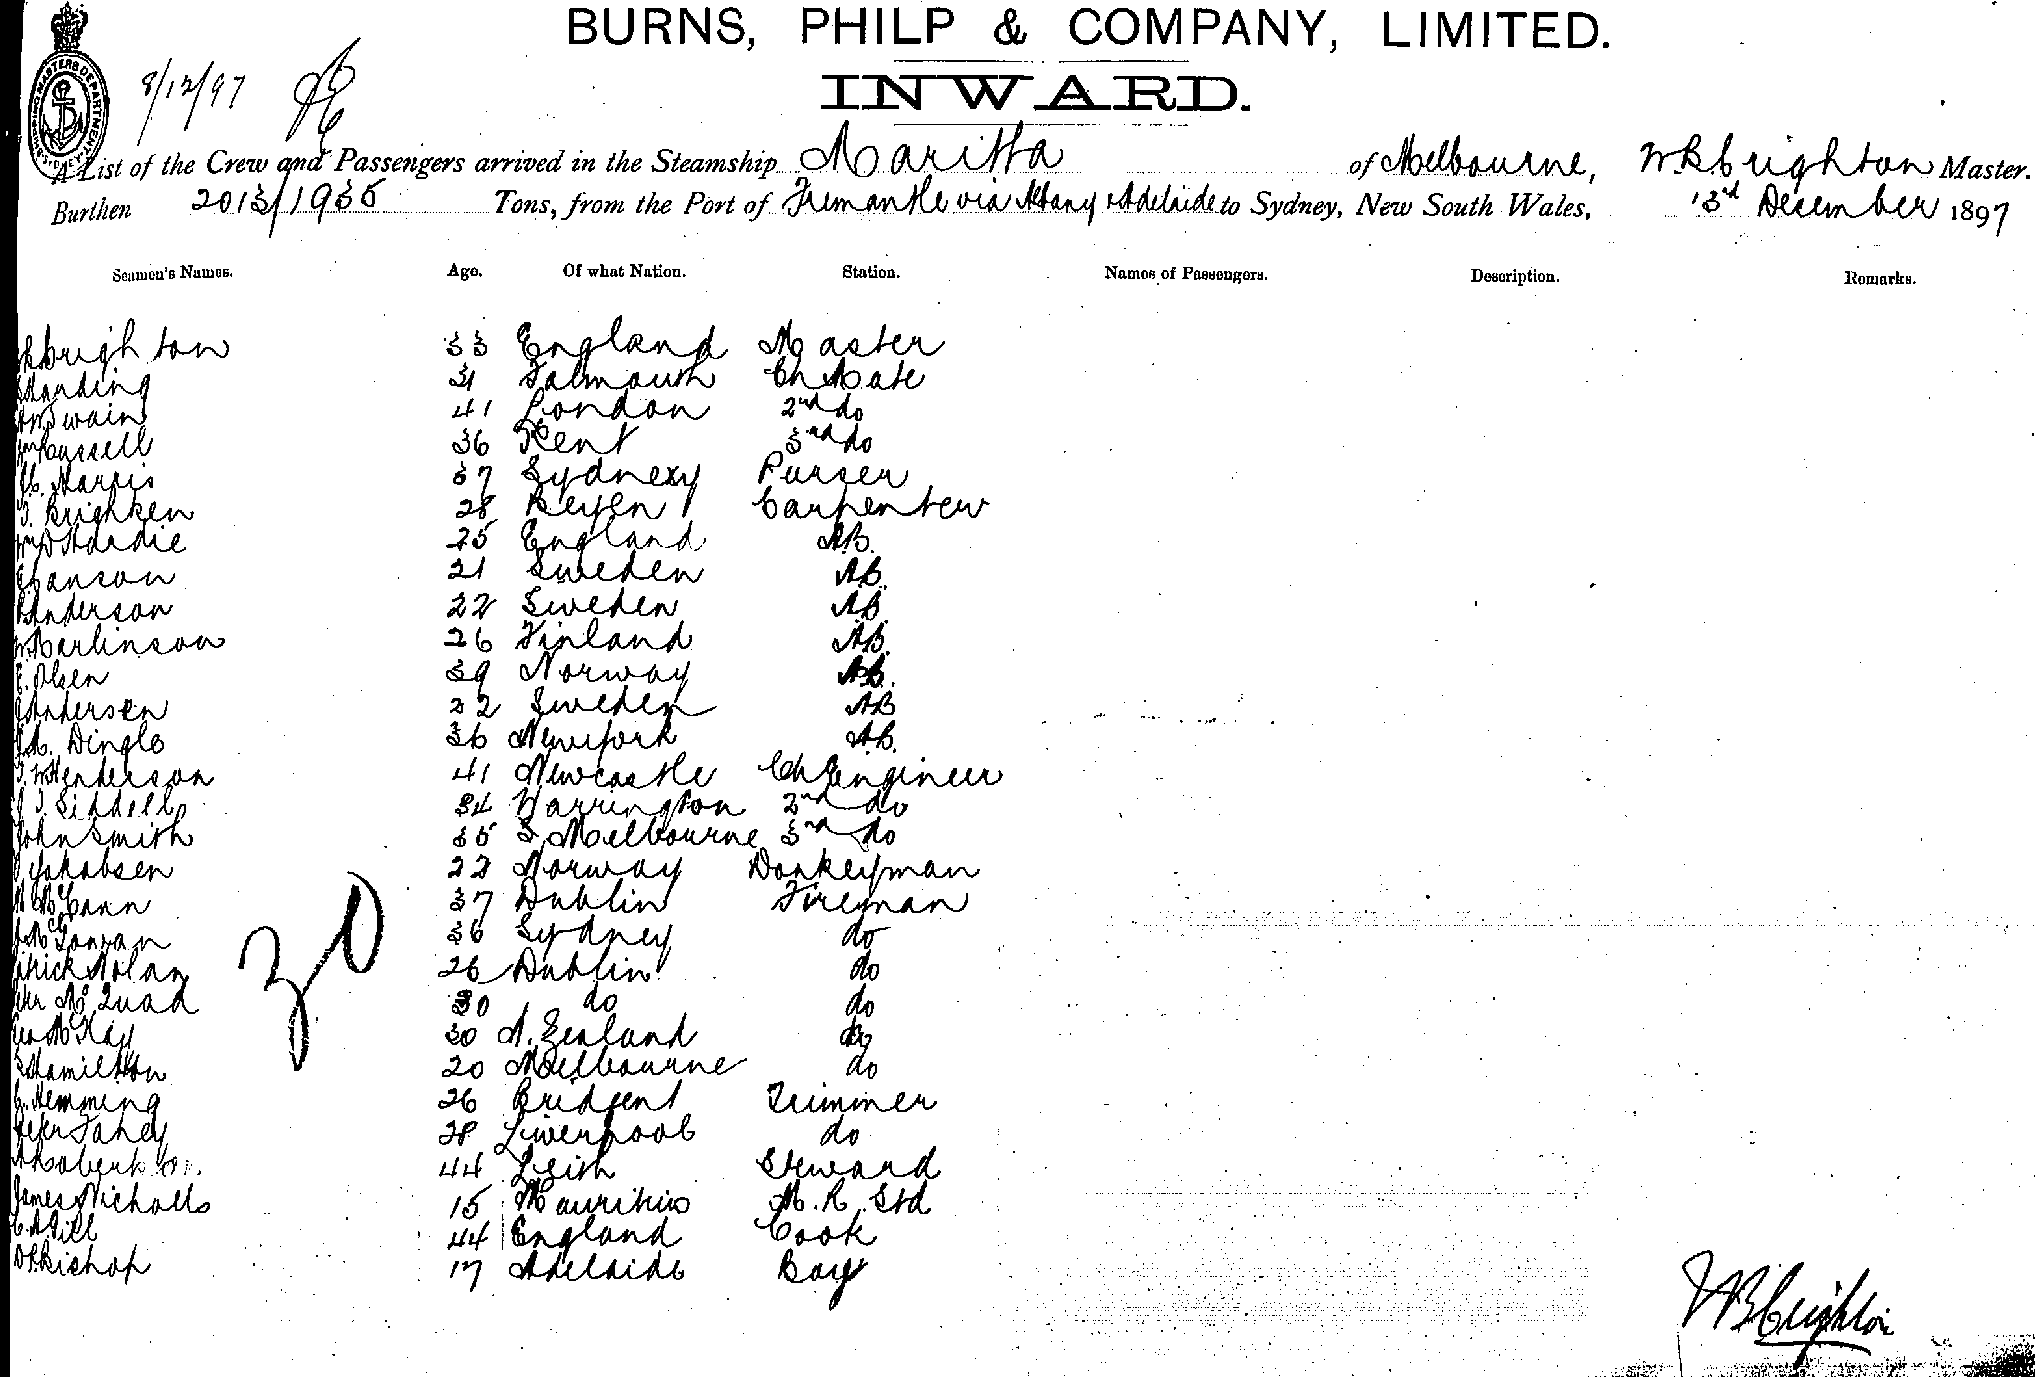 BURNS, PHILP & COMPANY, LIMITED.
INWARD.
8/12/97
A List of the Crew and Passengers arrived in the Steamship of Melbourne, W B Creighton Master.
Burthen 2013/1935 Tons, from the Port of Fremantle via Albany & Adelaide to Sydney, New South Wales, 13rd December 1897
Seamen's Names. Age. Of what Nation. Station. Names of Passengers. Description. Remarks.
Creighton 33 England Master
Standing 31 Falmouth Ch Mate
Swain 41 London 2nd do
Russell 36 Kent 3rd do
Harris 37 Sydney Purser
28 Carpenter
Hardie 25 England A.B.
Hanson 21 Sweden A.B.
Anderson 22 Sweden A.B.
26 Finland A.B.
Olsen 39 Norway A.B.
Andersen 22 Sweden AB
Dingle 36 Newyork A.B.
Henderson 41 Newcastle Ch Engineer
J. Siddell 34 Warrington 2nd do
John Smith 35 S. Melbourne 3rd do
Jakobsen 22 Norway Donkeyman
McCann 37 Dublin Fireman
McGowan 36 Sydney do
Nolan 26 Dublin do
McQuad 30 do do
McKay 30 N. Zealand do
Hamilton 20 Melbourne do
30
Hemming 26 Trimmer
Peter Fahey 28 Liverpool do
Robertson 44 Leith Steward
James Nicholls 15 Mauritius M. R. Std
44 England Cook
Bishop 17 Adelaide Boy
W B Creighton